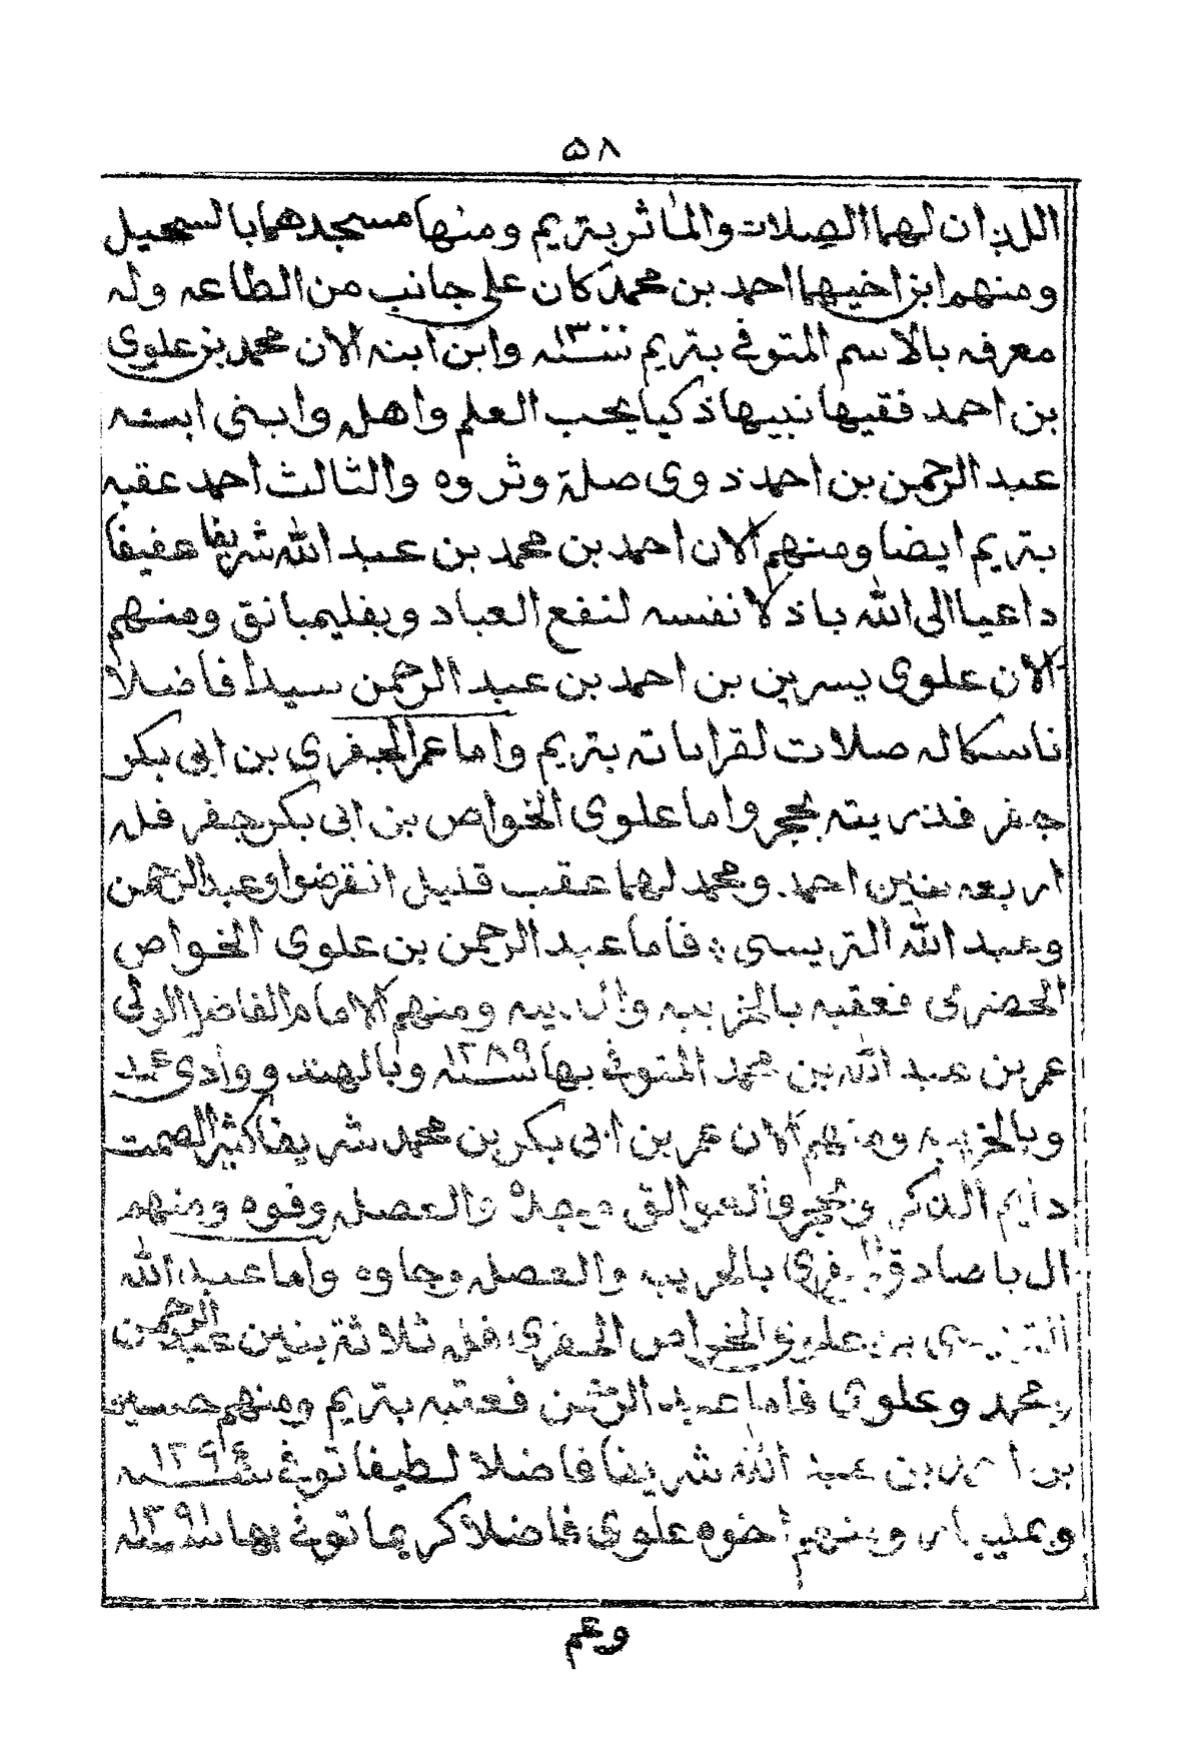 ٥٨
اللذان لهما الصلات والمآثر بتريم ومنها مسجدهما بالسحيل
ومنهم ابن اخيهما احمد بن محمد كان على جانب من الطاعه وله
معرفه بالاسم المتوفي بتريم سنه ١٣٠٠ وابن ابنه الان محمد بن علوي
بن احمد فقيها نبيها ذكيا يحب العلم واهله وابني ابنه
عبد الرحمن بن احمد ذوي صلة وثروه والثالث احمد عقبه
بتريم ايضا ومنهم الان احمد بن محمد بن عبد الله شريفا عفيفا
داعيا الى الله باذلا نفسه لنفع العباد وبفليمبانق ومنهم
الان علوي يسرين بن احمد بن عبد الرحمن سيدا فاضلا
ناسكا له صلات لقراباته بتريم واما عمر الجفري بن ابي بكر
جفر فذريته بحجر واما علوي الخواص بن ابي بكر جفر فله
اربعه بنين احمد ومحمد لهما عقب قليل انقرضوا وعبد الرحمن
وعبد الله التريسي فاما عبد الرحمن بن علوي الخواص
الحضرمي فعقبه بالخريبه ومنهم الامام الفاضل الولي
عمر بن عبد الله بن محمد المتوفي بها سنه ١٢٨٩ وبالهند ووادي عمد
وبالخريبه ومنهم الان عمر بن ابي بكر بن محمد شريفا كثير الصمت
دايم الذكر وبحجر والعوالق والعصله وفوه ومنهم
ال باصادق الجفري بالخريبه والعصله وجاوه واما عبد الله
التريسي بن علوي الخواص الجفري فله ثلاثة بنين عبد الرحمن
ومحمد وعلوي فاما عبد الرحمن فعقبه بتريم ومنهم حسين
بن احمد بن عبد الله شريفا فاضلا لطيفا توفي سنه ١٢٩٤
ومنهم اخوه علوي فاضلا كريما توفي بها سنه ١٢٩١
وعم